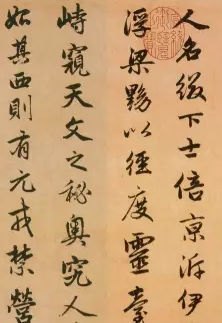 人名綴下士倍亰泝伊
浮梁黝以徑度靈臺
峙窺天文之秘奧究人
始其西則有元戎禁營